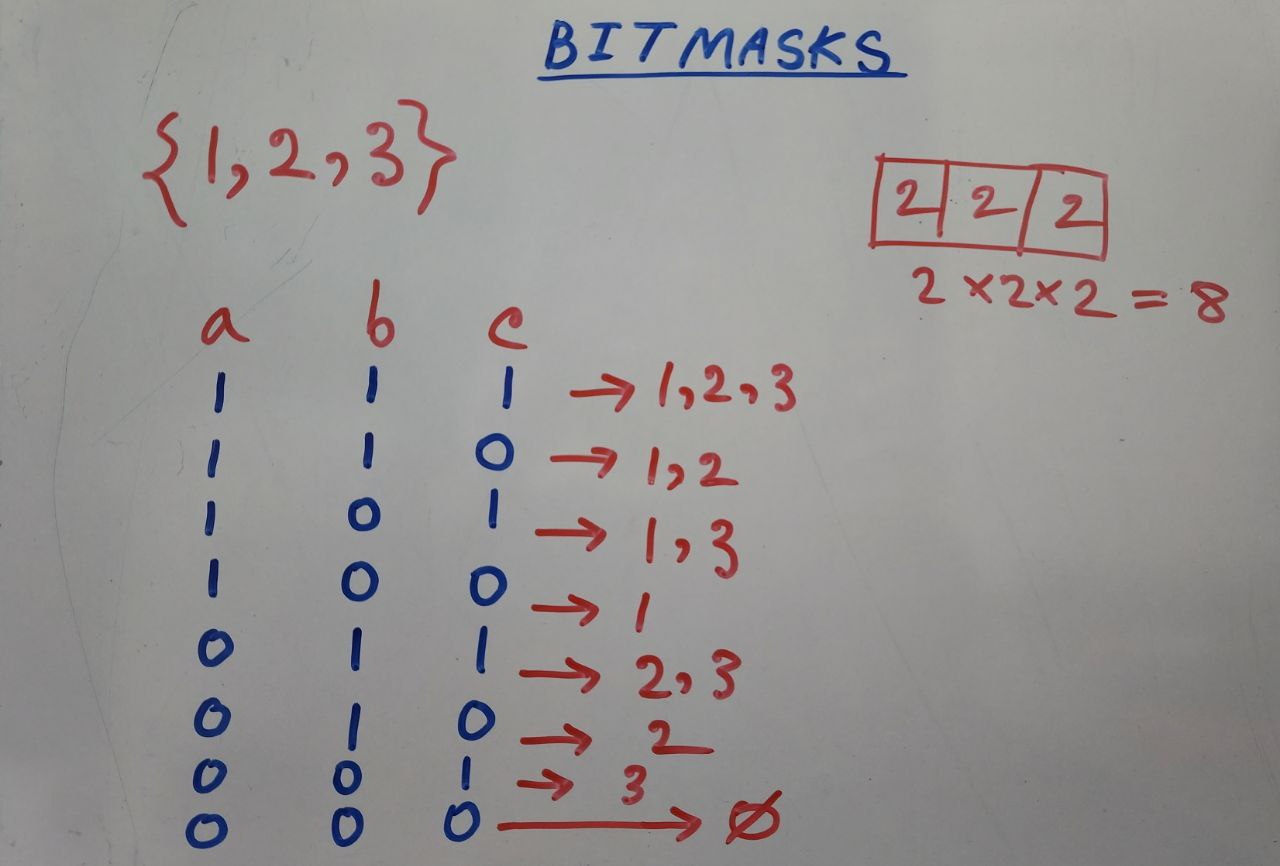 BITMASKS
{1,2,3}
2 2 2
2×2×2=8
a b c
1 1 1 → 1,2,3
1 1 0 → 1,2
1 0 1 → 1,3
1 0 0 → 1
0 1 1 → 2,3
0 1 0 → 2
0 0 1 → 3
0 0 0 → ∅